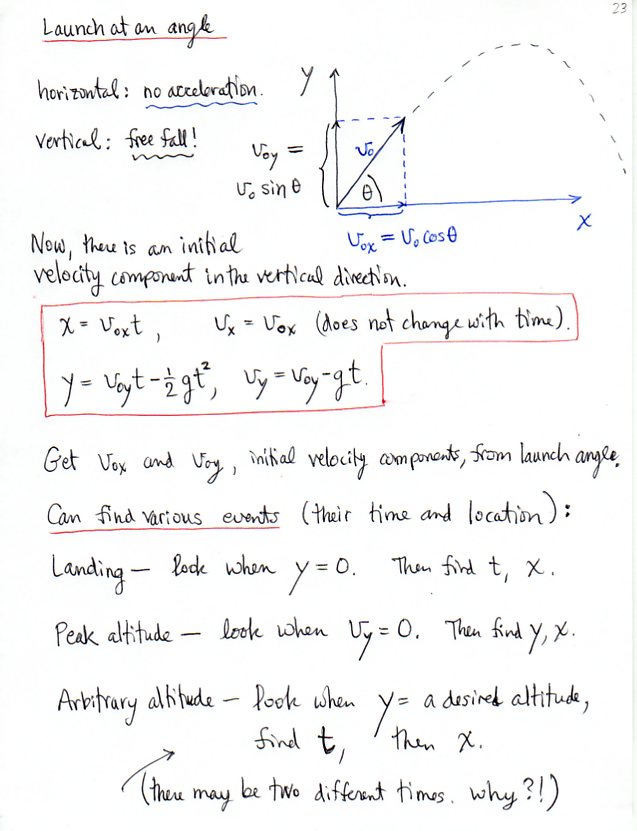 23
Launch at an angle
horizontal: no acceleration.
vertical: free fall!
y
v₀y =
v₀ sin θ
v₀
θ
x
v₀x = v₀ cos θ
Now, there is an initial
velocity component in the vertical direction.
x = v₀x t , vx = v₀x (does not change with time).
y = v₀y t - ½ g t², vy = v₀y - gt.
Get v₀x and v₀y, initial velocity components, from launch angle.
Can find various events (their time and location):
Landing — look when y = 0. Then find t, x.
Peak altitude — look when vy = 0. Then find y, x.
Arbitrary altitude — look when y = a desired altitude,
find t, then x.
(there may be two different times. why?!)